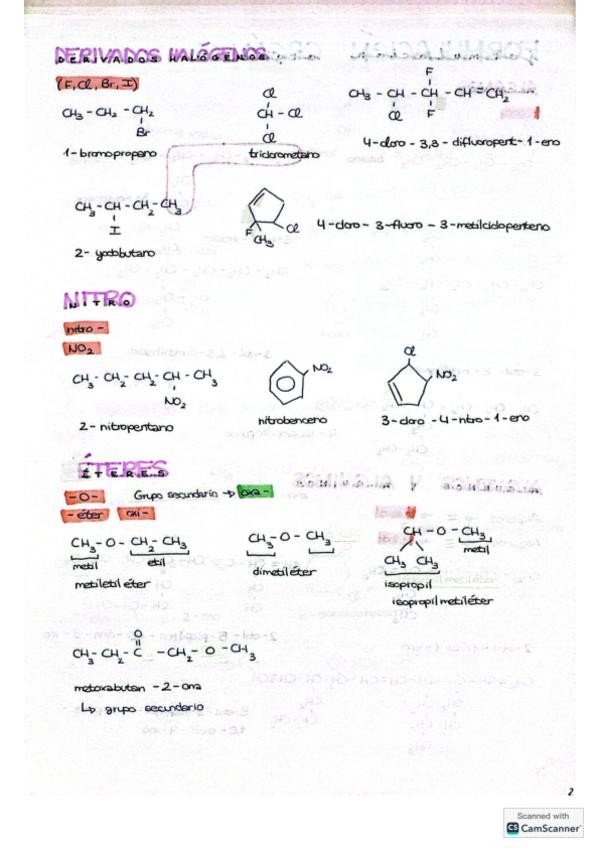 DERIVADOS HALÓGENOS
(F, Cl, Br, I)
CH₃ - CH₂ - CH₂
Br
1-bromopropano
Cl
CH - Cl
Cl
triclorometano
F
CH₃ - CH - CH - CH=CH₂
Cl F
4-cloro-3,3-difluoropent-1-eno
CH₃-CH-CH₂-CH₃
I
2-yodobutano
F Cl
CH₃
4-cloro-3-fluoro-3-metilciclopenteno
NITRO
nitro-
NO₂
CH₃-CH₂-CH₂-CH-CH₃
NO₂
2-nitropentano
NO₂
nitrobenceno
Cl
NO₂
3-cloro-4-nitro-1-eno
ÉTERES
-O- Grupo secundario → oxa-
-éter oxi-
CH₃-O-CH₂-CH₃
metil etil
metiletil éter
CH₃-O-CH₃
dimetiléter
CH-O-CH₃
metil
CH₃ CH₃
isopropil
isopropilmetiléter
O
CH₃-CH₂-C-CH₂-O-CH₃
metoxabutan-2-ona
↳ grupo secundario
2
Scanned with
CS CamScanner